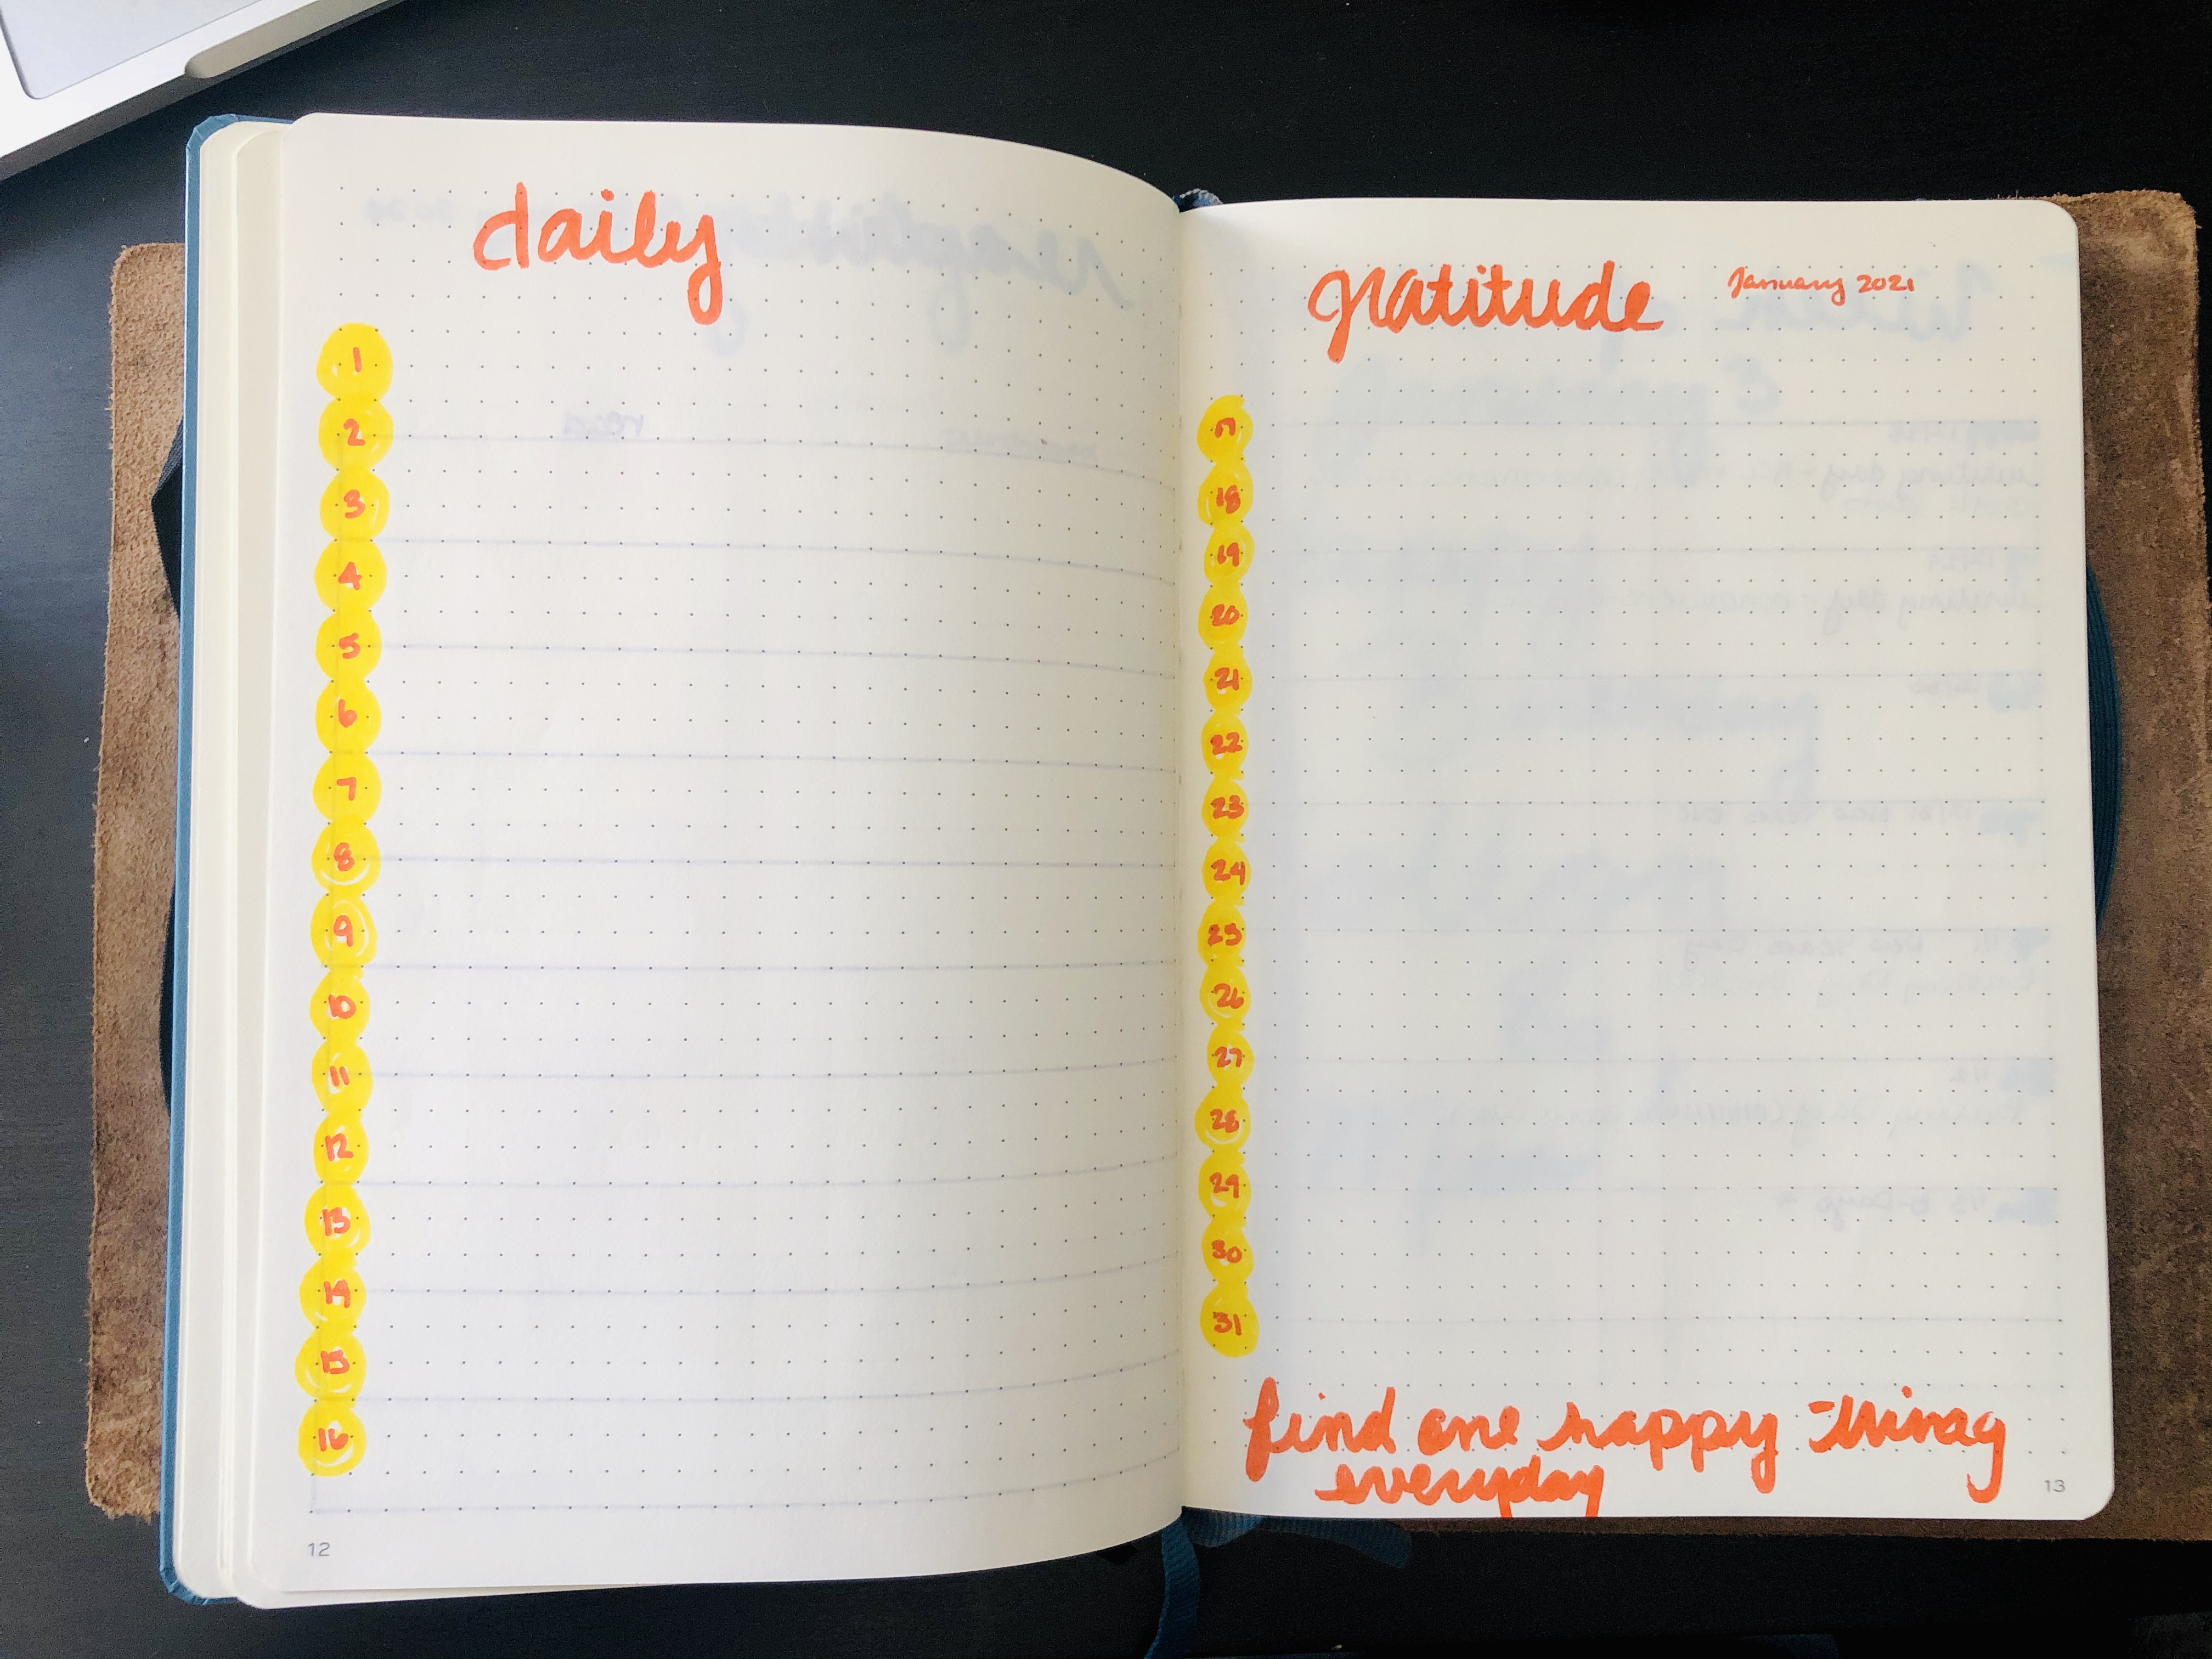 daily
1
2
3
4
5
6
7
8
9
10
11
12
13
14
15
16
12
gratitude January 2021
17
18
19
20
21
22
23
24
25
26
27
28
29
30
31
find one happy thing
everyday
13